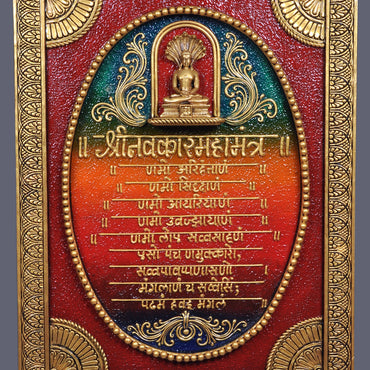 ॥ श्री नवकार महामंत्र ॥
॥ णमो अरिहंताणं ॥
॥ णमो सिद्धाणं ॥
॥ णमो आयरियाणं ॥
॥ णमो उवज्झायाणं ॥
॥ णमो लोए सव्वसाहूणं ॥
एसो पंच णमुक्कारो,
सव्वपावप्पणासणो
मंगलाणं च सव्वेसिं;
पढमं हवइ मंगलं ॥